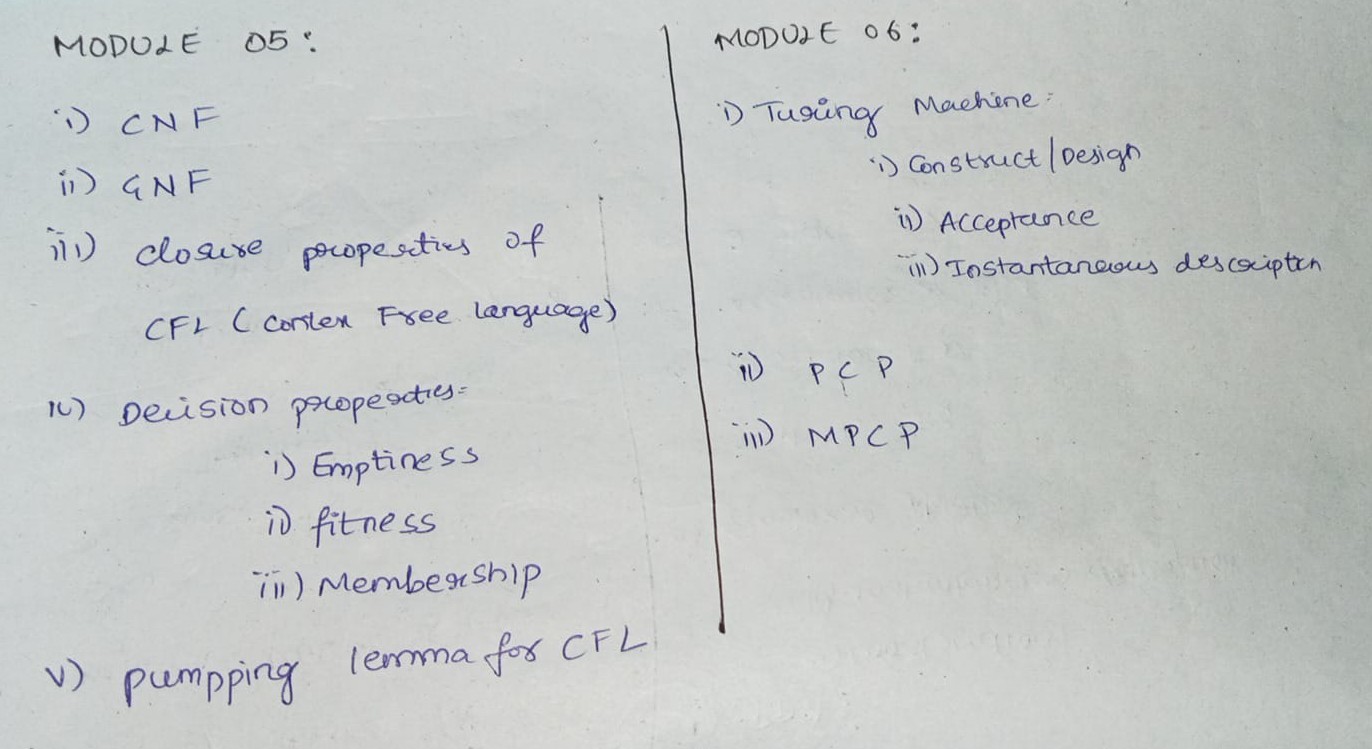 MODULE 05:
i) CNF
ii) GNF
iii) closure properties of
CFL (contex Free language)
iv) Decision properties:
i) Emptiness
ii) fitness
iii) Membership
v) pumpping lemma for CFL
MODULE 06:
i) Turing Machine:
i) Construct/Design
ii) Acceptance
iii) Instantaneous descriptn
ii) PCP
iii) MPCP